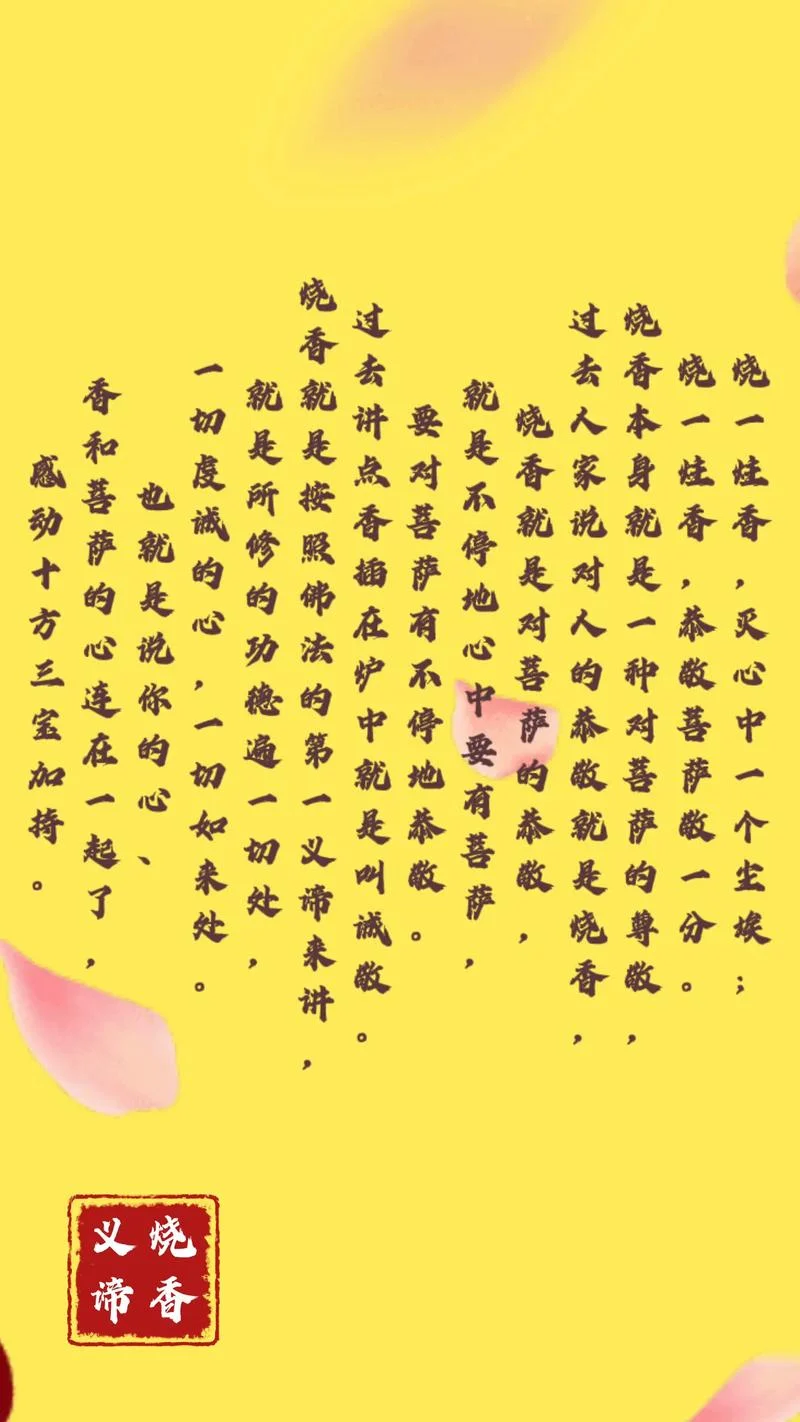 烧一炷香，灭心中一个尘埃；
烧一炷香，恭敬菩萨敬一分。
烧香本身就是一种对菩萨的尊敬，
过去人家说对人的恭敬就是烧香，
烧香就是对菩萨的恭敬，
就是不停地心中要有菩萨，
要对菩萨有不停地恭敬。
过去讲点香插在炉中就是叫诚敬。
烧香就是按照佛法的第一义谛来讲，
就是所修的功德遍一切处，
一切虔诚的心，一切如来处。
也就是说你的心、
香和菩萨的心连在一起了，
感动十方三宝加持。
烧香
义谛